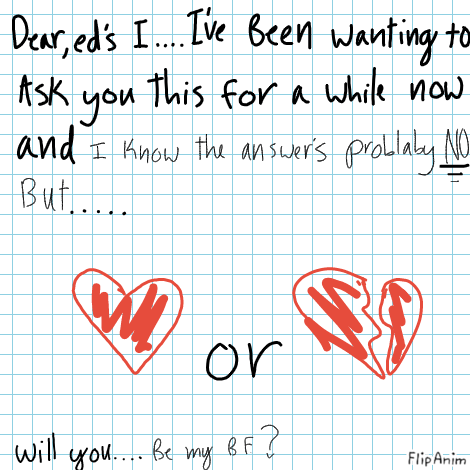 Dear,ed's I....I've Been wanting to
Ask you This for a while now
and I know the answer's problaby NO
But.....
or
will you.... Be my BF?
FlipAnim